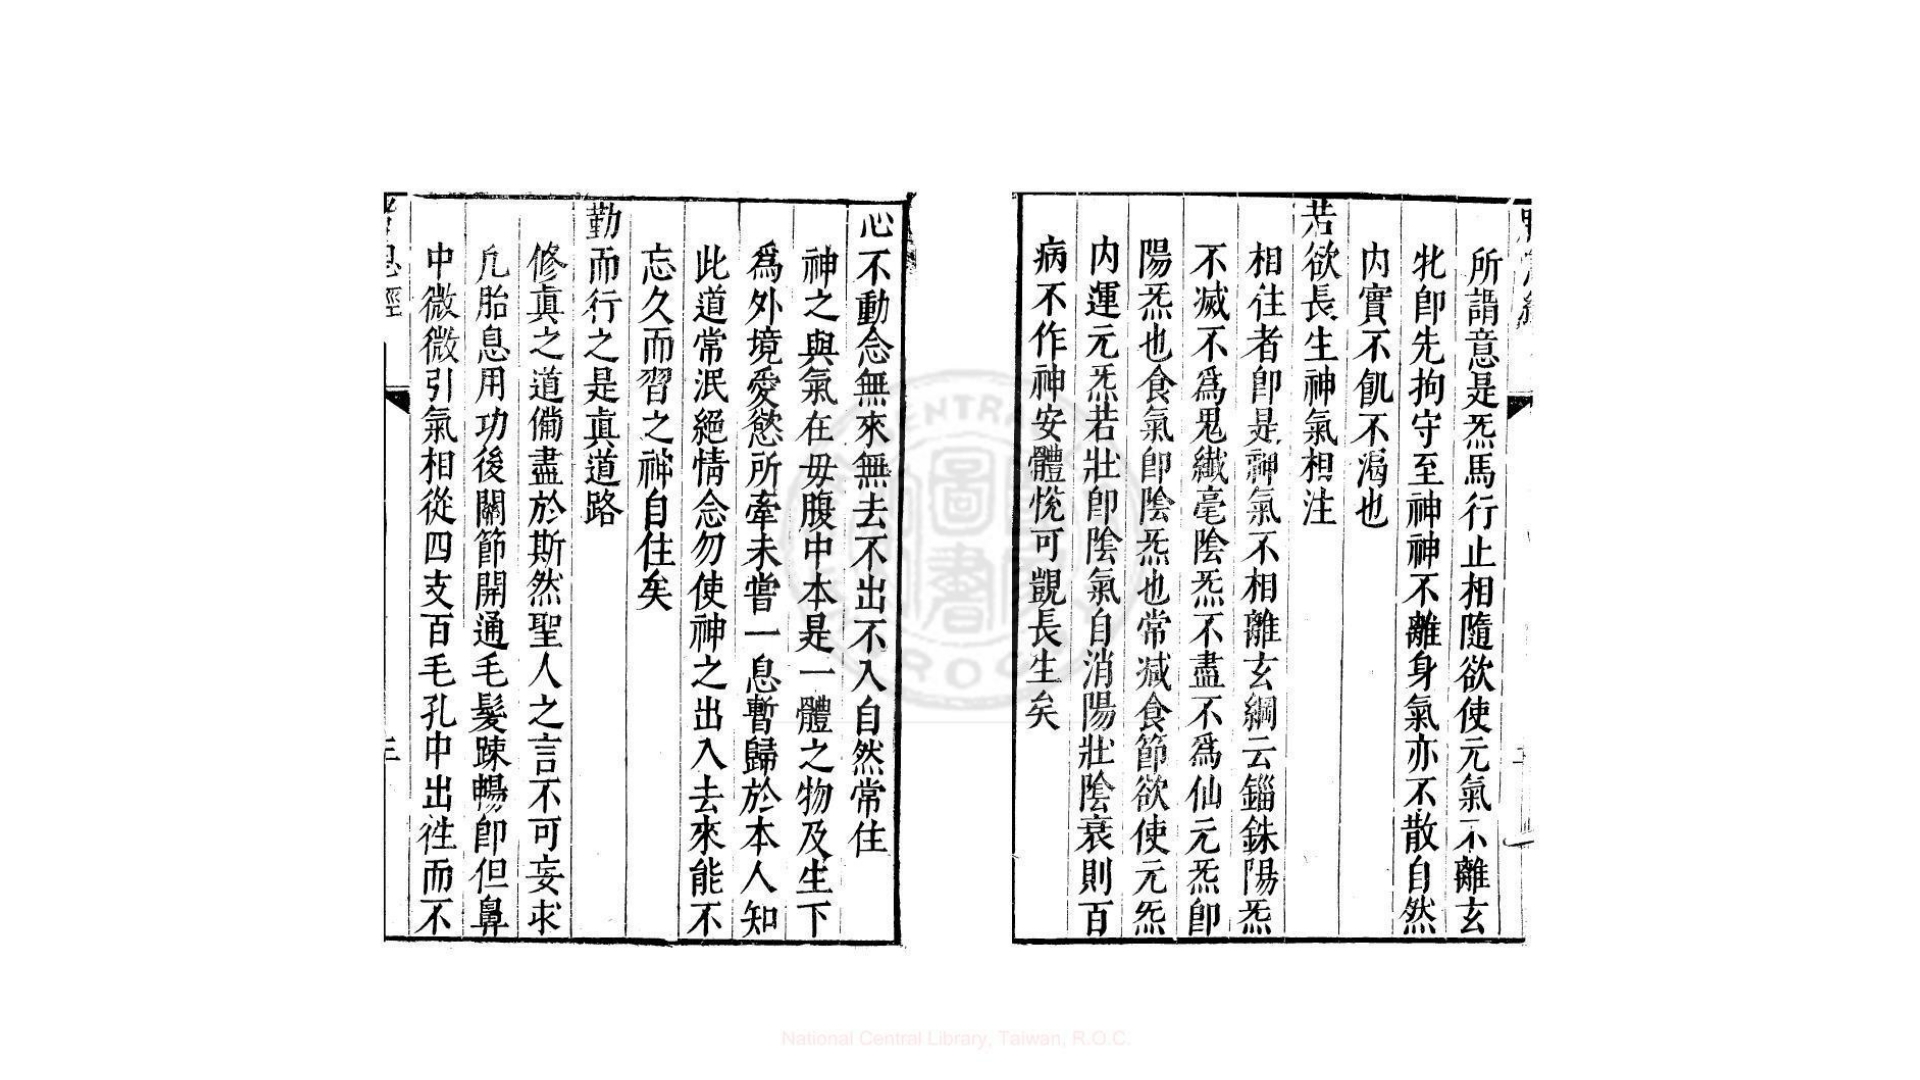 所謂意是炁馬行止相隨欲使元氣不離玄
牝卽先拘守至神神不離身氣亦不散自然
内實不飢不渴也
若欲長生神氣相注
相往者卽是神氣不相離玄綱云錙銖陽炁
不滅不爲鬼纖毫陰炁不盡不爲仙元炁卽
陽炁也食氣卽陰炁也常减食節欲使元炁
内運元炁若壯卽陰氣自消陽壯陰衰則百
病不作神安體悅可覬長生矣
心不動念無來無去不出不入自然常住
神之與氣在毋腹中本是一體之物及生下
爲外境愛慾所牽未嘗一息暫歸於本人知
此道常泯絕情念勿使神之出入去來能不
忘久而習之神自住矣
勤而行之是眞道路
修眞之道備盡於斯然聖人之言不可妄求
凢胎息用功後關節開通毛髮踈暢卽但鼻
中微微引氣相從四支百毛孔中出徃而不
息經
National Central Library, Taiwan, R.O.C.